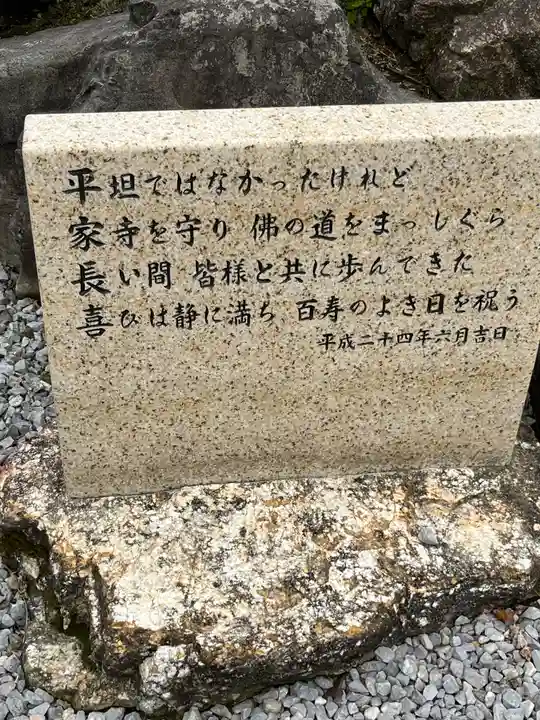 平坦ではなかったけれど
家寺を守り 佛の道をまっしぐら
長い間 皆様と共に歩んできた
喜びは静に満ち 百寿のよき日を祝う
平成二十四年六月吉日